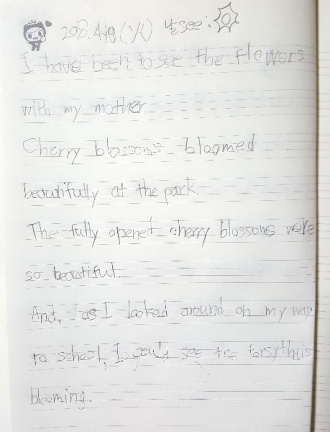 I have been to see the flowers
with my mother
Cherry blossoms bloomed
beautifully at the park
The fully opened cherry blossoms were
so beautiful.
And, as I looked around on my way
to school, I could see the forsythias
blooming.